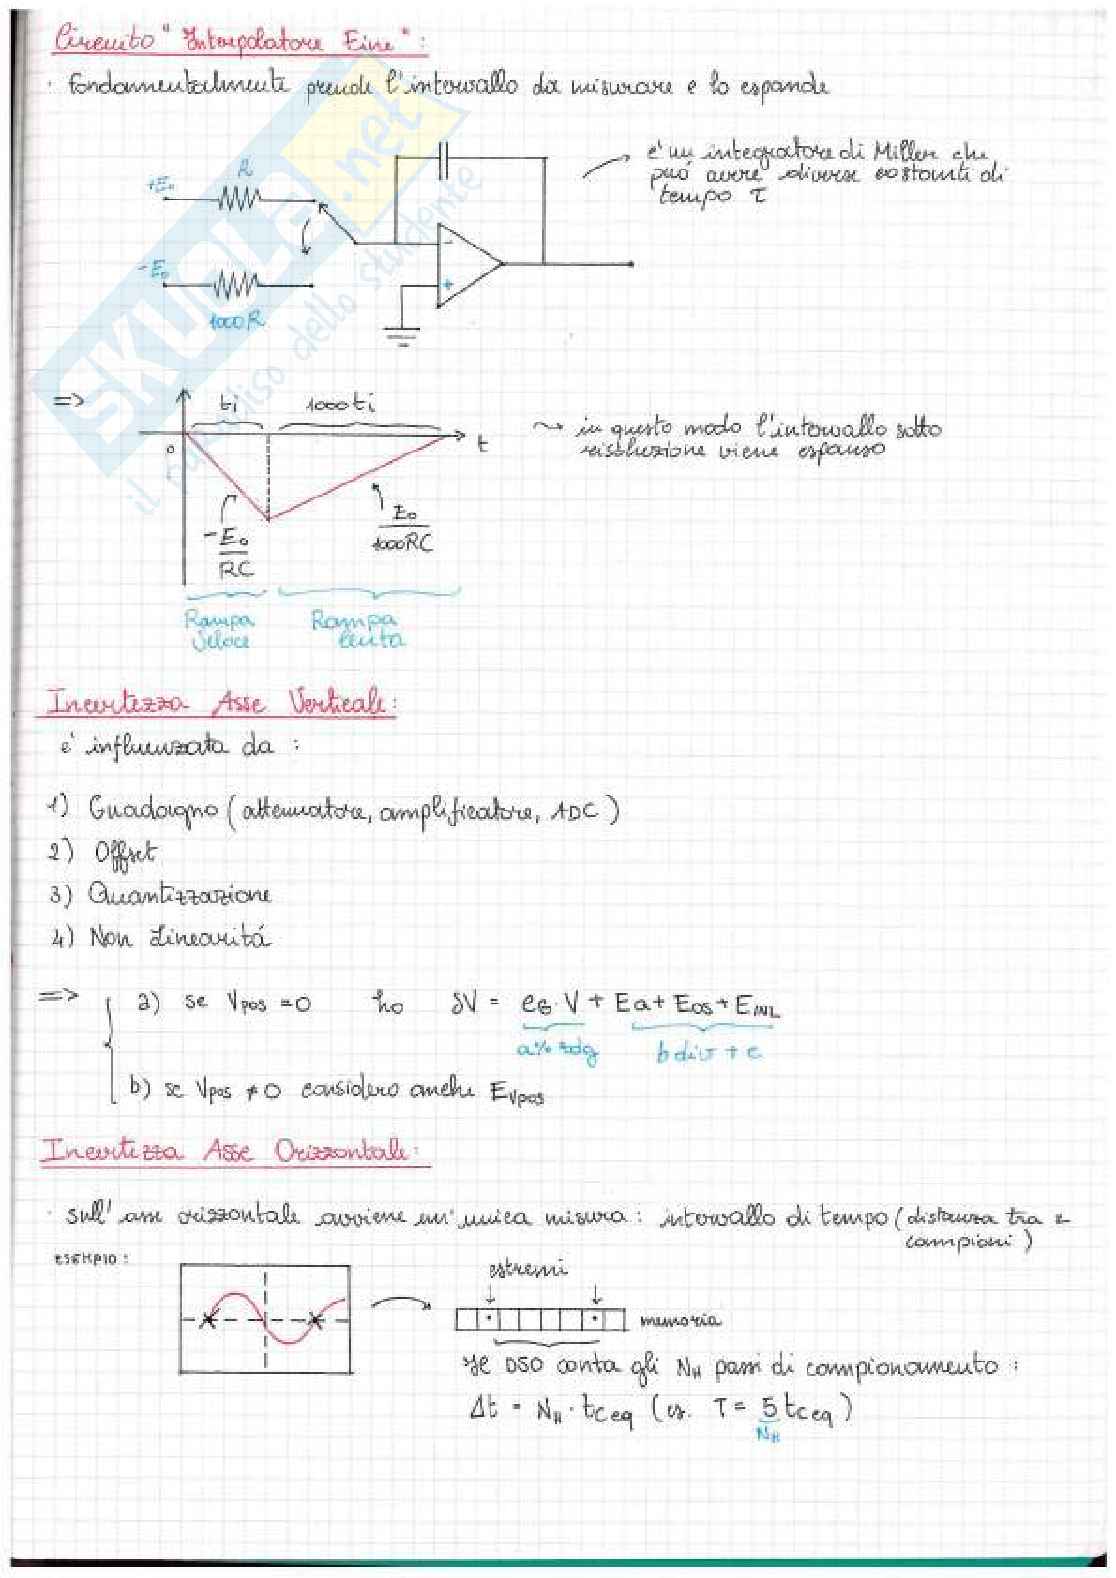 Circuito "Interpolatore Fine":
· fondamentalmente prende l'intervallo da misurare e lo espande
+E₀
R
-E₀
1000R
-
+
è un integratore di Miller che
può avere diverse costanti di
tempo τ
=>
ti
1000ti
0
t
-E₀/RC
E₀/1000RC
Rampa
veloce
Rampa
lenta
~> in questo modo l'intervallo sotto
risoluzione viene espanso
Incertezza Asse Verticale:
è influenzata da :
1) Guadagno (attenuatore, amplificatore, ADC)
2) Offset
3) Quantizzazione
4) Non Linearitá
=>
a) se Vpos = 0 ho δV = eG·V + Ea + Eos + EINL
a% rdg
b div + c
b) se Vpos ≠ 0 considero anche EVpos
Incertezza Asse Orizzontale:
· sull'asse orizzontale avviene un'unica misura: intervallo di tempo (distanza tra 2
campioni)
ESEMPIO:
estremi
memoria
Il DSO conta gli NH passi di campionamento:
Δt = NH · tceq (es. T = 5 tceq)
NH
SKUOLA.net
il paradiso dello studente